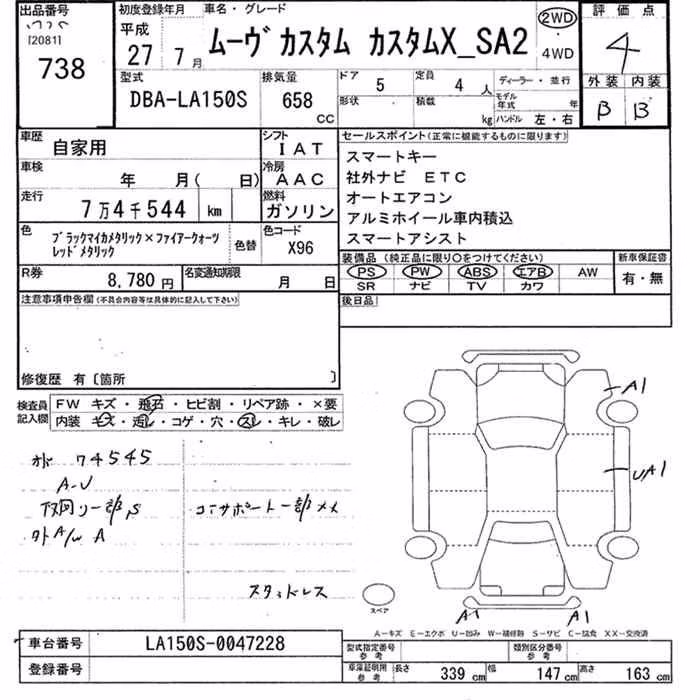 出品番号
[2081]
738
初度登録年月
平成
27 7月
車名・グレード
ムーヴ カスタム カスタムX_SA2
2WD
・
4WD
評価点
4
外装 内装
B B
型式
DBA-LA150S
排気量
658
CC
ドア 5
定員 4 人
形状
積載 kg
ディーラー・並行
モデル年式 年
ハンドル 左・右
車歴
自家用
シフト
IAT
車検
年 月( 日)
冷房
AAC
走行
7万4千544 km
燃料
ガソリン
色
ブラックマイカメタリック×ファイアークォーツ
レッドメタリック
色替
色コード
X96
R券
8,780円
名変通知期限
月 日
セールスポイント(正常に機能するものに限ります)
スマートキー
社外ナビ ETC
オートエアコン
アルミホイール車内積込
スマートアシスト
装備品 (純正品に限り○をつけてください)
PS PW ABS エアB AW
SR ナビ TV カワ
新車保証書
有・無
後日品
注意事項申告欄(不具合内容等は具体的に記入して下さい)
修復歴 有〔箇所 〕
検査員
記入欄
FW キズ・飛石・ヒビ割・リペア跡・×要
内装 キズ・汚レ・コゲ・穴・スレ・キレ・破レ
74545
A-U
コアサポート一部メメ
A
スタッドレス
A1
UA1
A1
A1
スペア
A-キズ E-エクボ U-凹み W-補修跡 S-サビ C-腐食 XX-交換済
車台番号
LA150S-0047228
登録番号
型式指定番号
参考
類別区分番号
参考
車庫証明用
参考
長さ 339 cm 幅 147 cm 高さ 163 cm